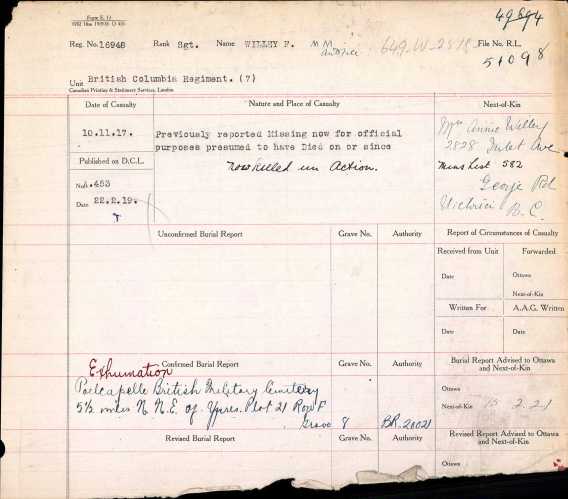 Form E. 17
49694
Reg. No. 16948 Rank Sgt. Name WILLEY F. M M 649-W-2818 File No. R.L.
51098
Unit British Columbia Regiment. (7)
Canadian Printing & Stationery Services, London
Date of Casualty Nature and Place of Casualty Next-of-Kin
10.11.17. Previously reported Missing now for official
purposes presumed to have Died on or since
Now killed in Action.
Mrs Annie Willey
2828 Inlet Ave
Mins List 582
George Rd
Victoria B.C.
Published on D.C.L.
No. A.453
Date 22.2.19.
Unconfirmed Burial Report Grave No. Authority Report of Circumstances of Casualty
Received from Unit Forwarded
Date Ottawa
Next-of-Kin
Written For A.A.G. Written
Date Date
Exhumation
Confirmed Burial Report Grave No. Authority Burial Report Advised to Ottawa
and Next-of-Kin
Poelcapelle British Military Cemetery
5½ miles N.N.E. of Ypres. Plot 21 Row F
Grave 8 BR.20021
Ottawa
Next-of-Kin 15 2.21
Revised Burial Report Grave No. Authority Revised Report Advised to Ottawa
and Next-of-Kin
Ottawa